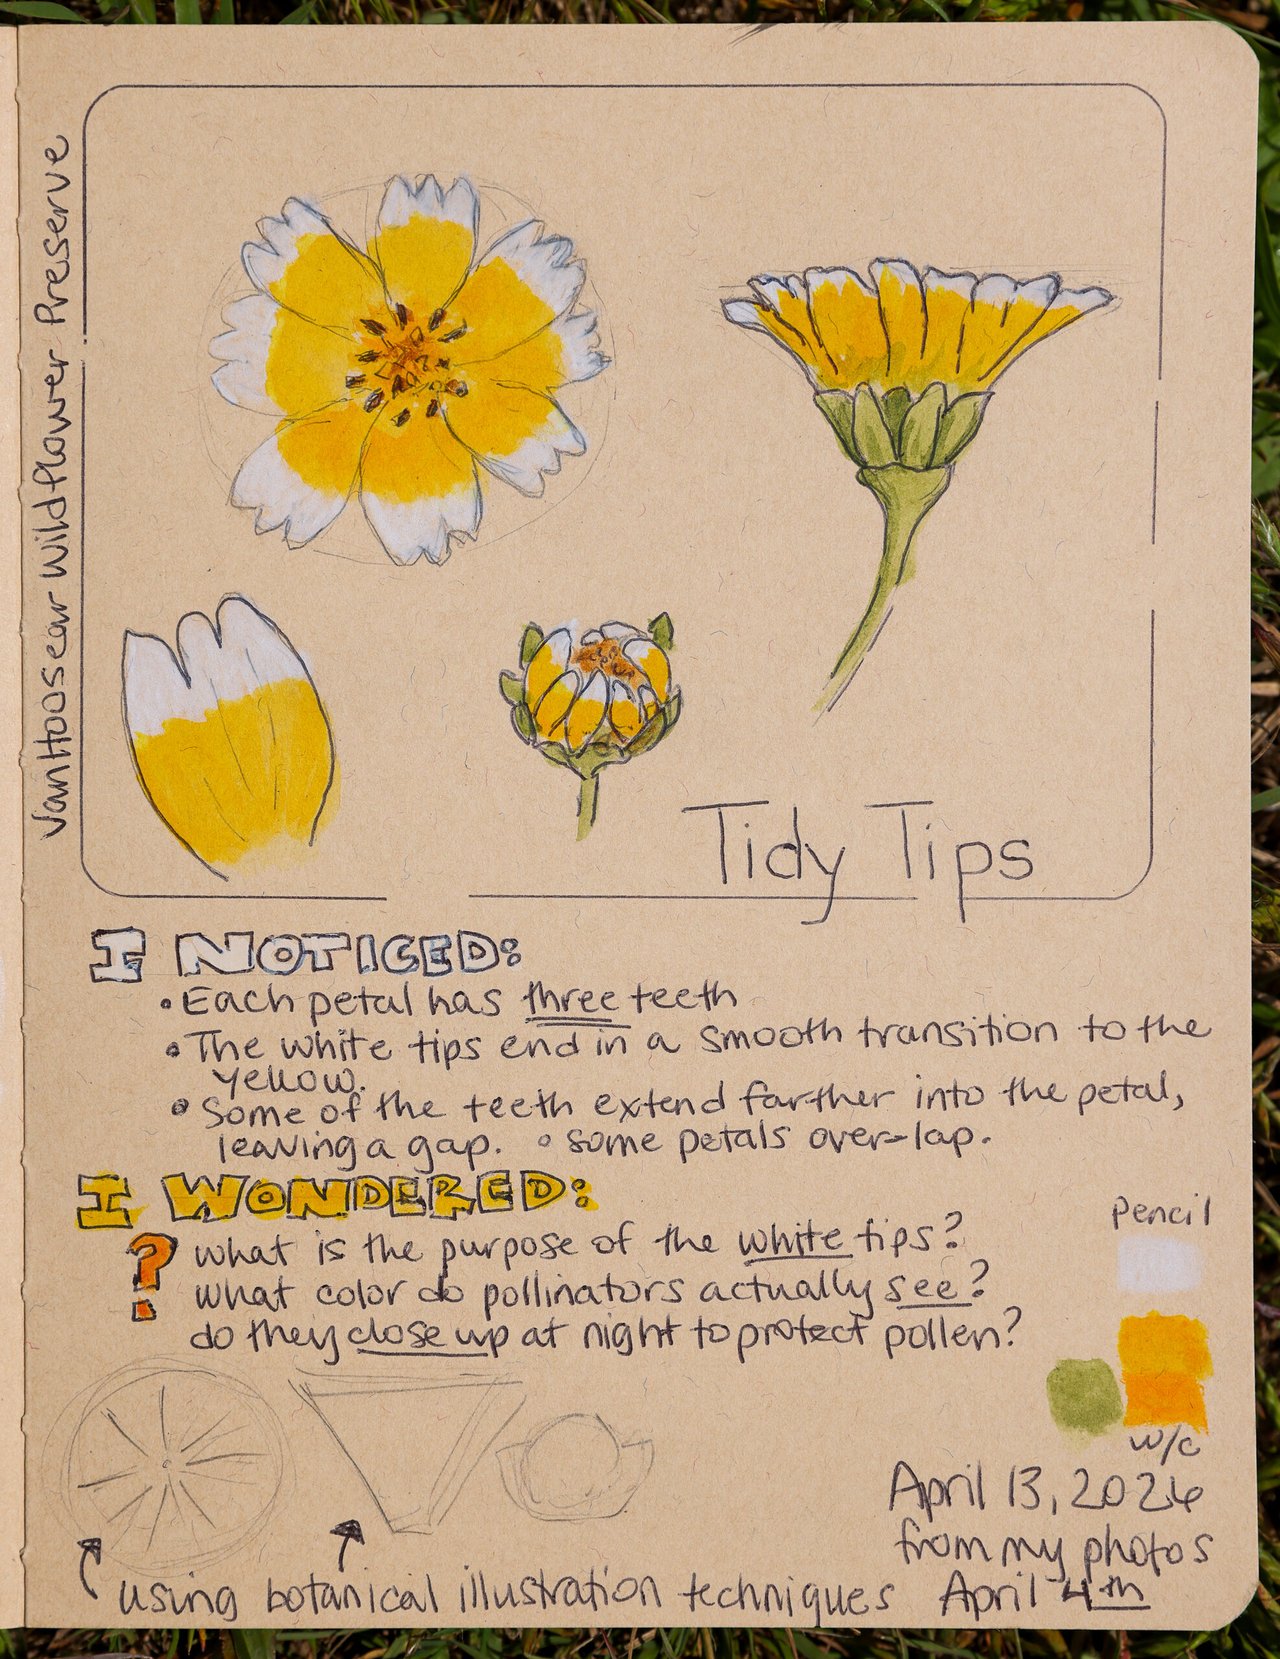 VanHoosear Wildflower Preserve
Tidy Tips
I NOTICED:
• Each petal has three teeth
• The white tips end in a smooth transition to the
yellow.
• Some of the teeth extend farther into the petal,
leaving a gap. • some petals over-lap.
I WONDERED:
? what is the purpose of the white tips?
what color do pollinators actually see?
do they close up at night to protect pollen?
Pencil
w/c
April 13, 2026
from my photos
April 4th
using botanical illustration techniques